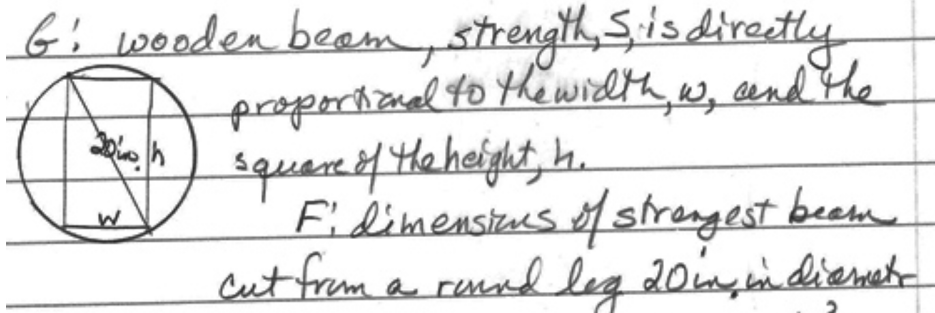 G: wooden beam, strength, S, is directly
proportional to the width, w, and the
20in. h
square of the height, h.
w
F: dimensions of strongest beam
cut from a round log 20in. in diametr